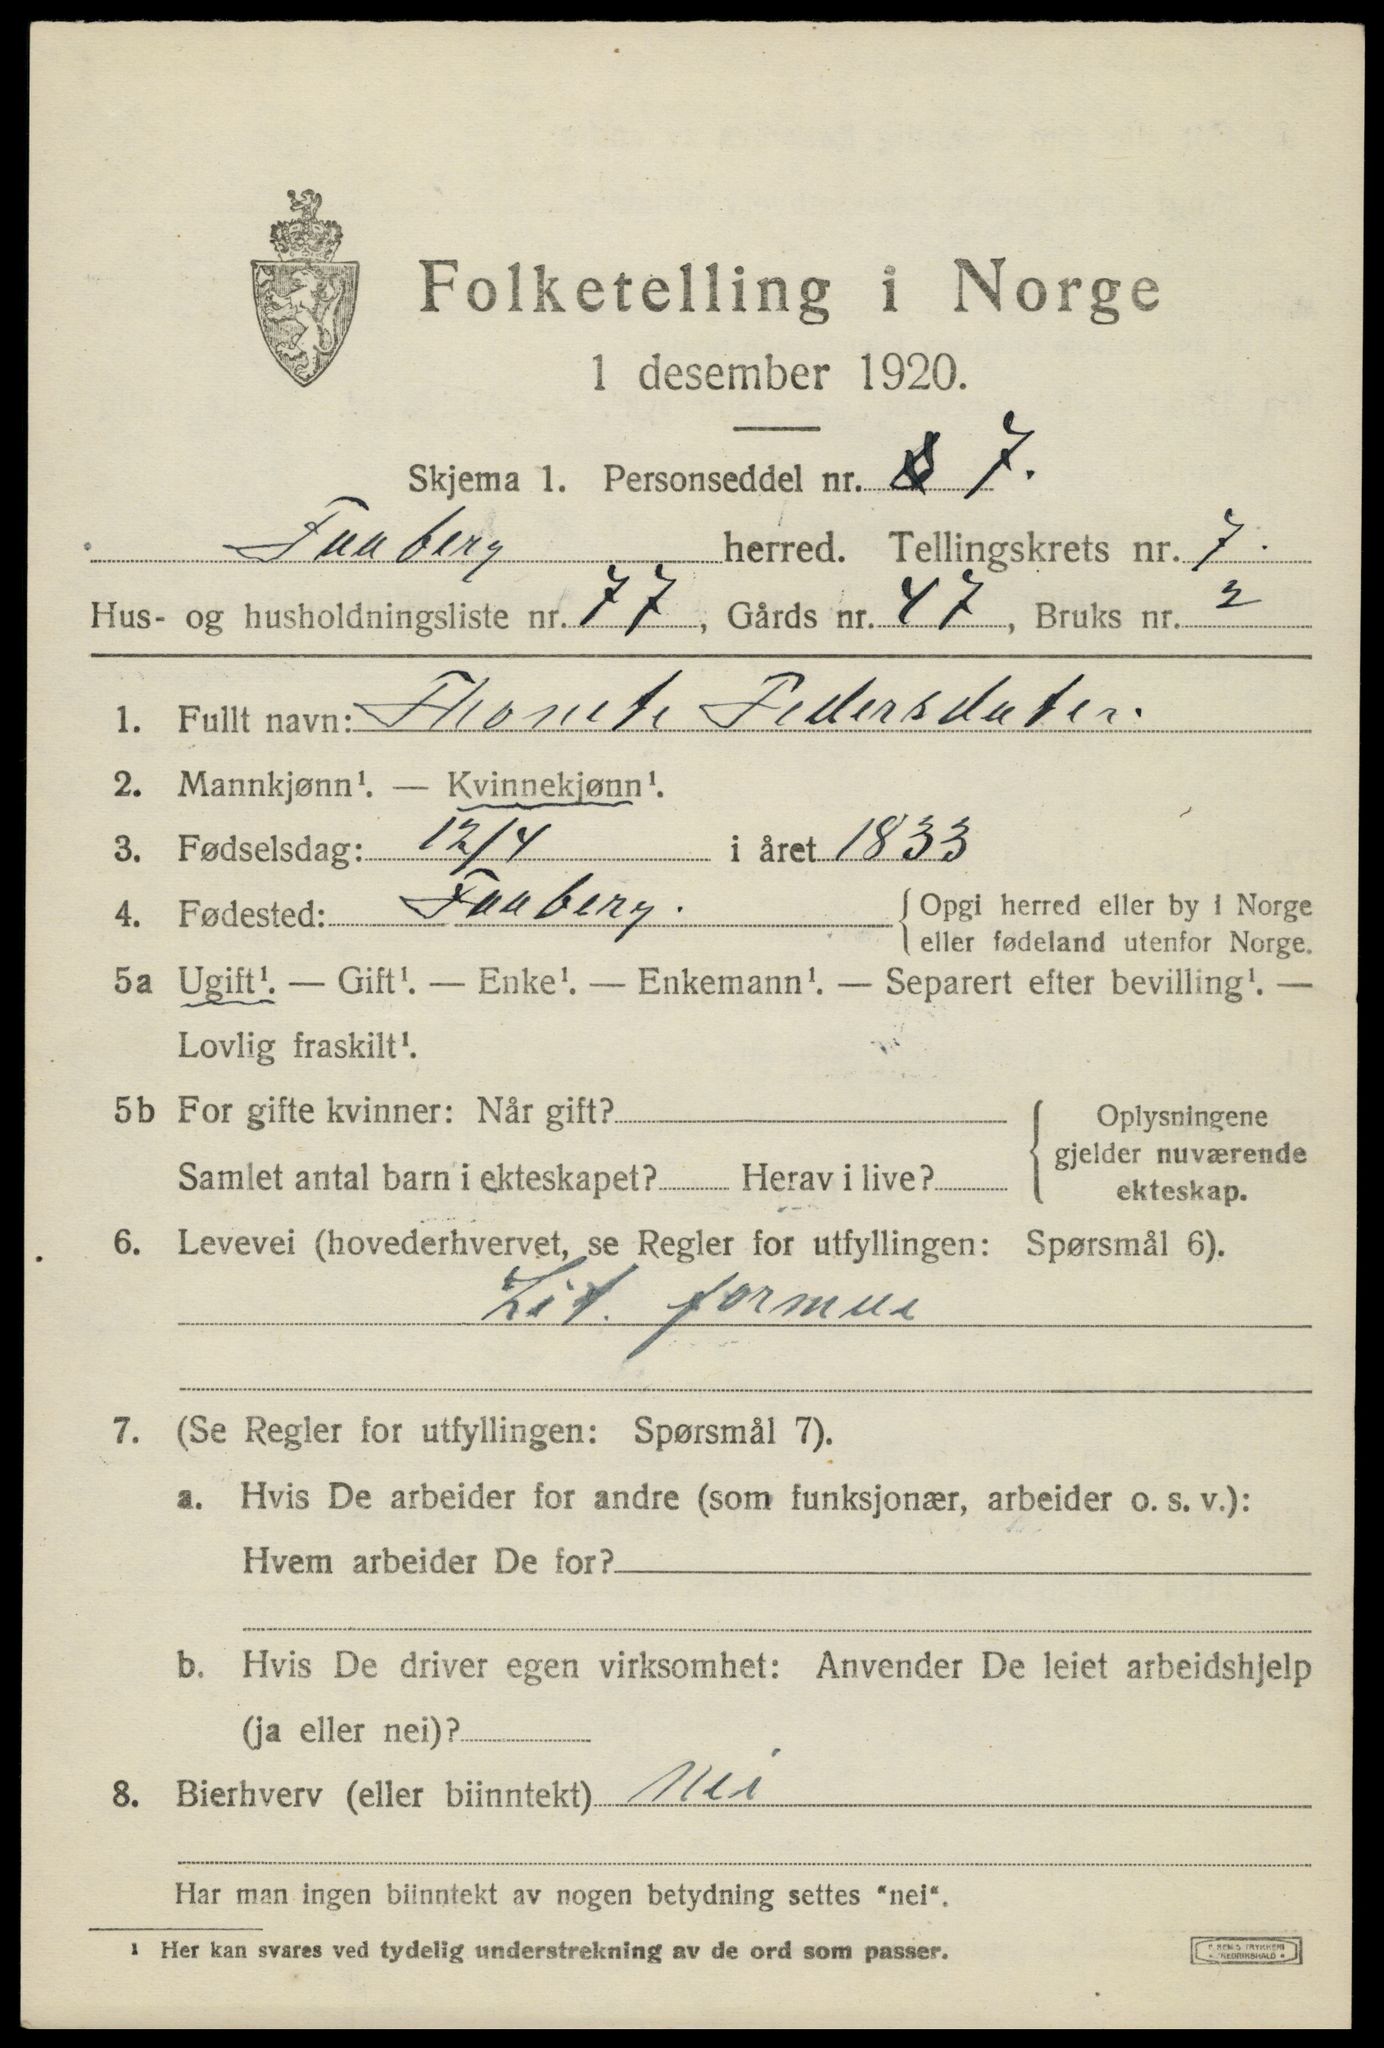 Folketelling i Norge
1 desember 1920.
Skjema 1. Personseddel nr. 7.
Faaberg herred. Tellingskrets nr. 7.
Hus- og husholdningsliste nr. 77, Gårds nr. 47, Bruks nr. 2
1. Fullt navn: Thonete Pedersdater.
2. Mannkjønn¹. — Kvinnekjønn¹.
3. Fødselsdag: 12/4 i året 1833
4. Fødested: Faaberg. { Opgi herred eller by i Norge
eller fødeland utenfor Norge.
5a Ugift¹. — Gift¹. — Enke¹. — Enkemann¹. — Separert efter bevilling¹. —
Lovlig fraskilt¹.
5b For gifte kvinner: Når gift?
Samlet antal barn i ekteskapet? Herav i live?
{ Oplysningene
gjelder nuværende
ekteskap.
6. Levevei (hovederhvervet, se Regler for utfyllingen: Spørsmål 6).
Lit. formue
7. (Se Regler for utfyllingen: Spørsmål 7).
a. Hvis De arbeider for andre (som funksjonær, arbeider o. s. v.):
Hvem arbeider De for?
b. Hvis De driver egen virksomhet: Anvender De leiet arbeidshjelp
(ja eller nei)?
8. Bierhverv (eller biinntekt) Nei
Har man ingen biinntekt av nogen betydning settes "nei".
¹ Her kan svares ved tydelig understrekning av de ord som passer.